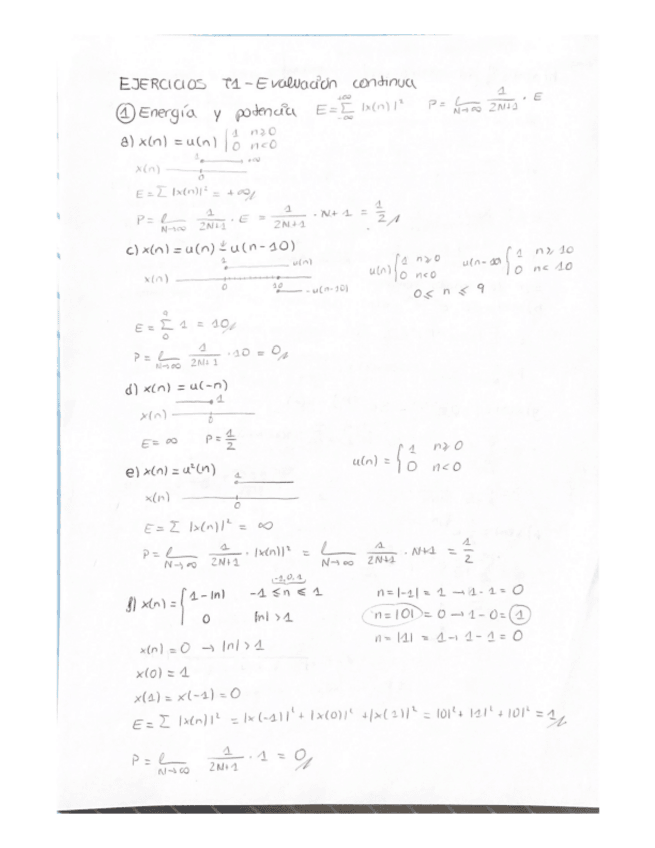 EJERCICIOS T1 - Evaluación continua
① Energía y potencia E = Σ_{-∞}^{+∞} |x(n)|² P = l_{N→∞} 1/(2N+1) · E
a) x(n) = u(n) | 1 n≥0
0 n<0
1 +∞
x(n)
0
E = Σ |x(n)|² = +∞
P = l_{N→∞} 1/(2N+1) · E = 1/(2N+1) · N+1 = 1/2
c) x(n) = u(n) u(n-10)
1 u(n)
x(n)
0 10
-u(n-10)
u(n) { 1 n≥0 u(n-10) { 1 n≥10
0 n<0 0 n<10
0 ≤ n ≤ 9
E = Σ_0^9 1 = 10
P = l_{N→∞} 1/(2N+1) · 10 = 0
d) x(n) = u(-n)
1
x(n)
0
E = ∞ P = 1/2
e) x(n) = u²(n)
u(n) = { 1 n≥0
0 n<0
1
x(n)
0
E = Σ |x(n)|² = ∞
P = l_{N→∞} 1/(2N+1) · |x(n)|² = l_{N→∞} 1/(2N+1) · N+1 = 1/2
-1,0,1
f) x(n) = { 1-|n| -1 ≤ n ≤ 1
0 |n| > 1
n = |-1| = 1 → 1-1 = 0
n = |0| = 0 → 1-0 = 1
n = |1| = 1 → 1-1 = 0
x(n) = 0 → |n| > 1
x(0) = 1
x(1) = x(-1) = 0
E = Σ |x(n)|² = |x(-1)|² + |x(0)|² + |x(1)|² = |0|² + |1|² + |0|² = 1
P = l_{N→∞} 1/(2N+1) · 1 = 0